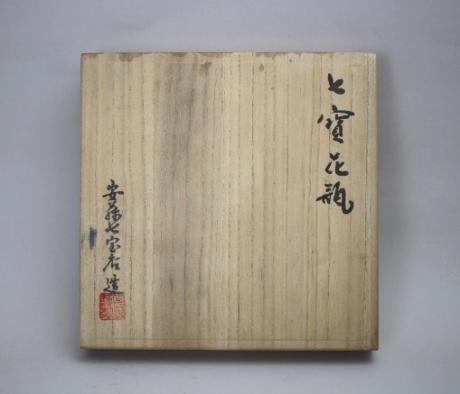 七寳花瓶
安藤七宝店造